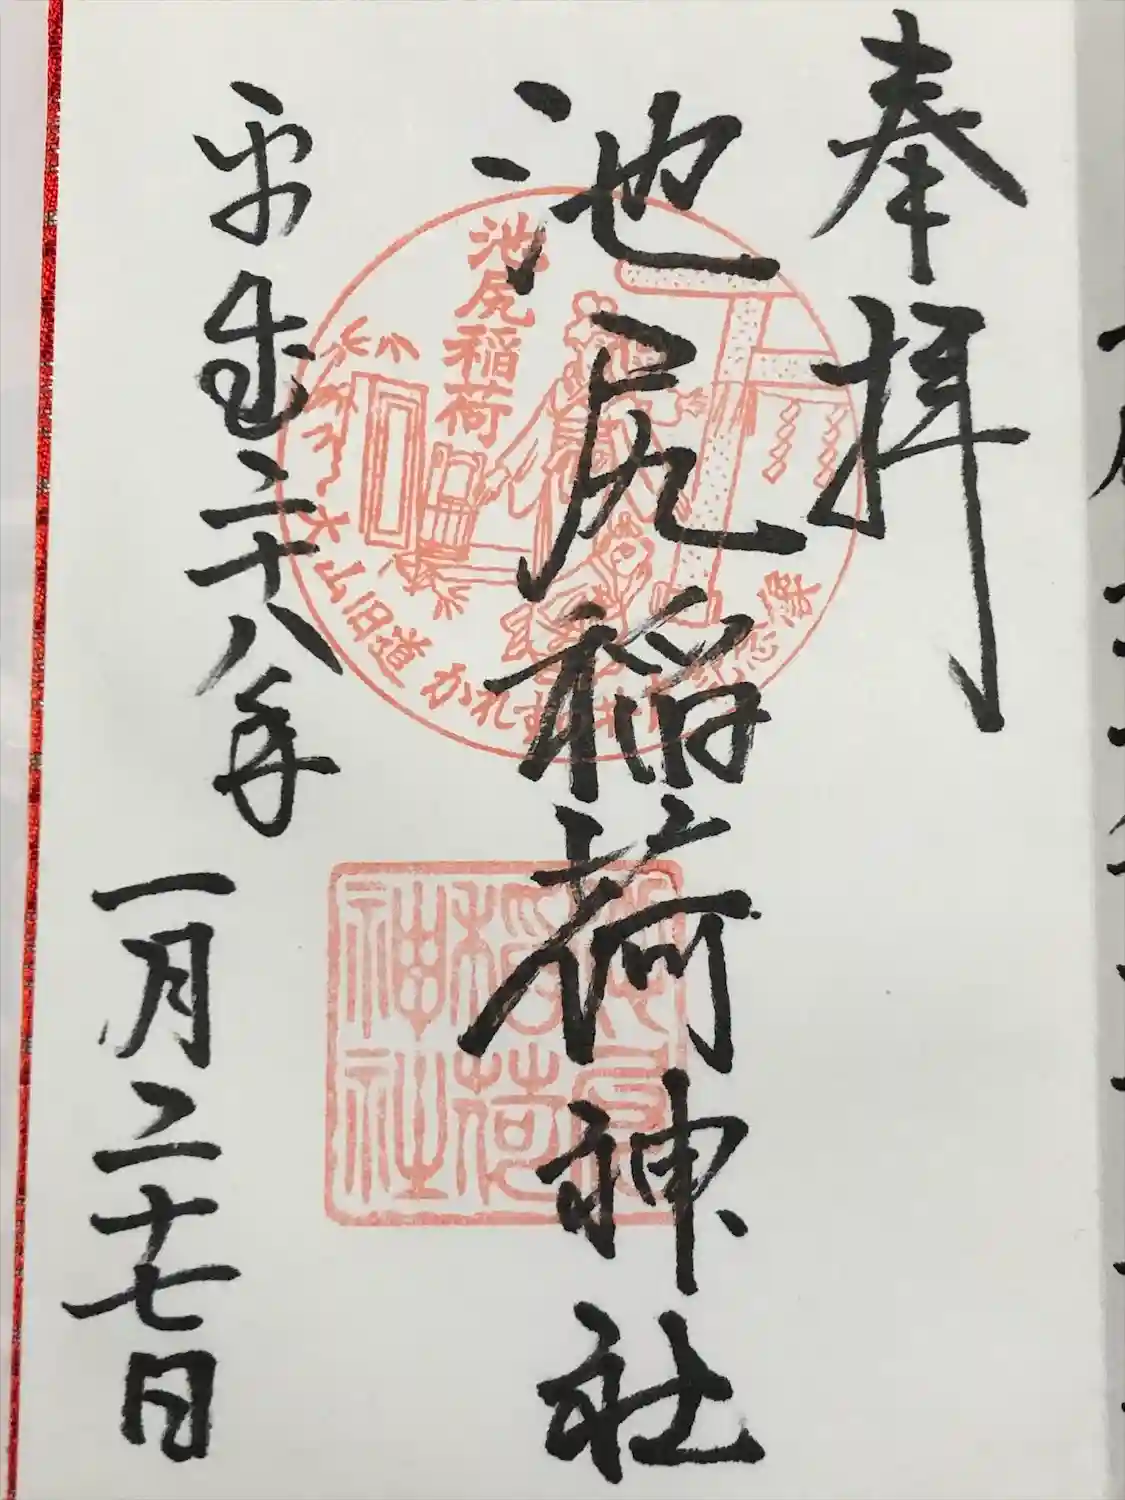 奉拝
池尻稲荷神社
平成二十八年 一月二十七日
池尻
稲荷
大山旧道 かれずの井戸
池尻
稲荷
神社